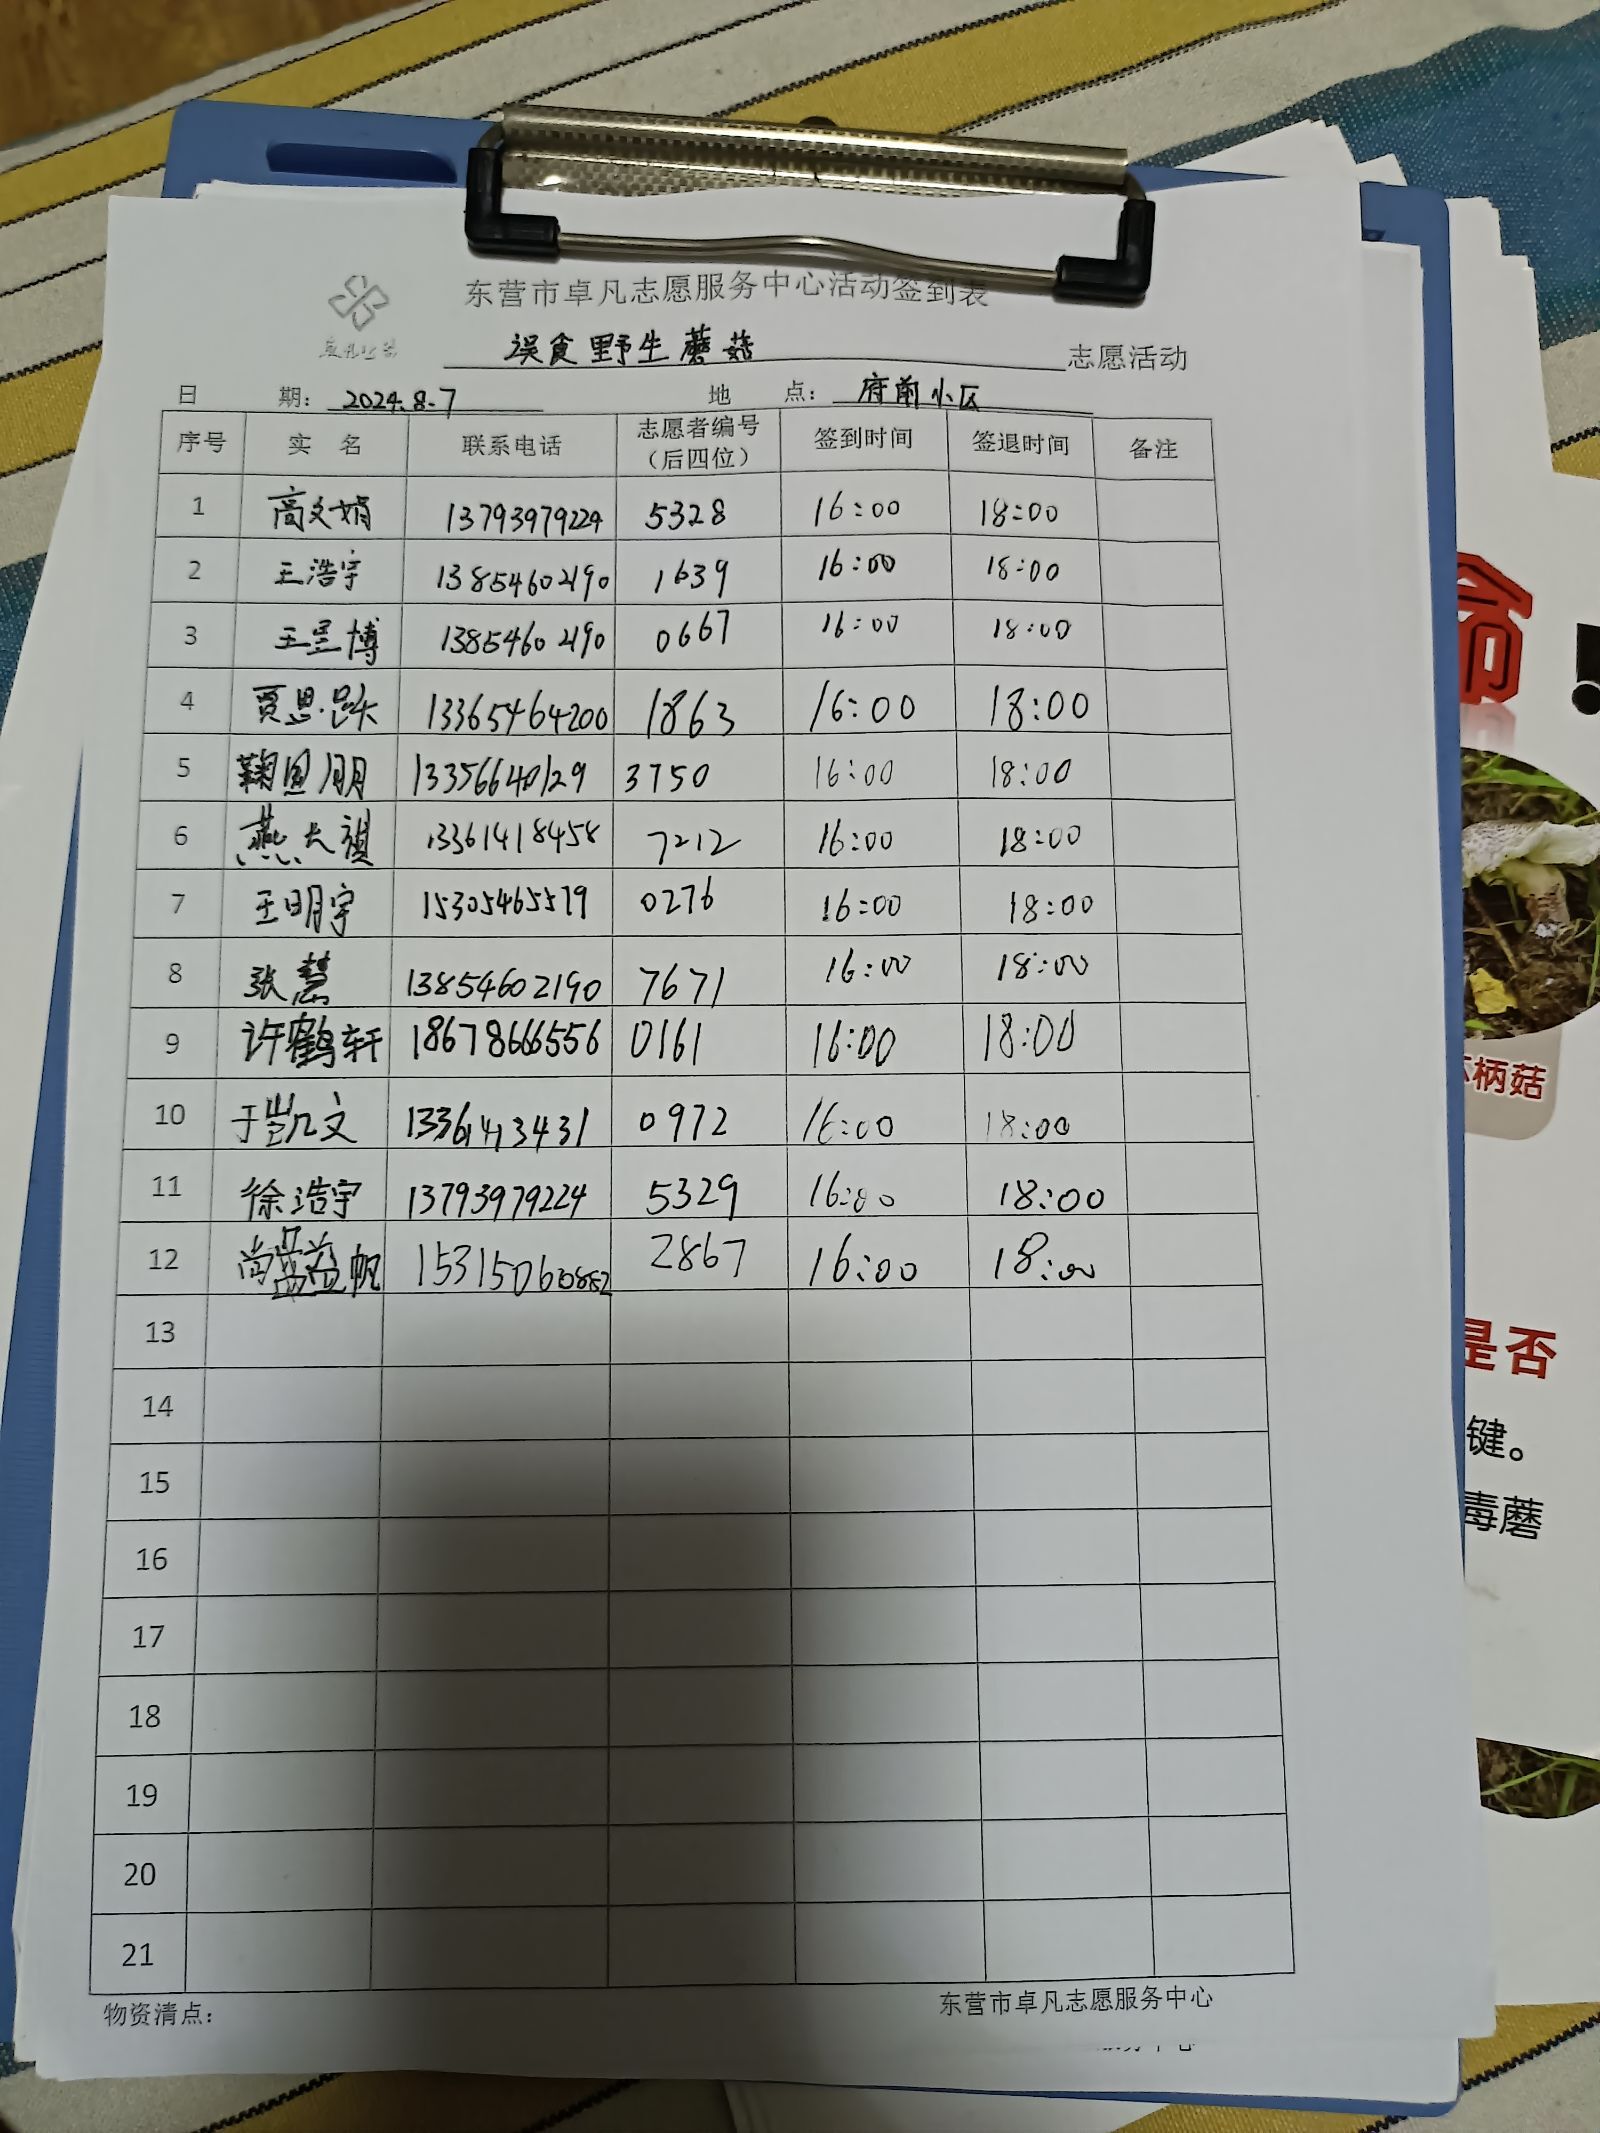 东营市卓凡志愿服务中心活动签到表
误食野生蘑菇 志愿活动
日 期: 2024.8.7 地 点: 府前小区
序号 实 名 联系电话 志愿者编号(后四位) 签到时间 签退时间 备注
1 高文娟 13793979224 5328 16:00 18:00
2 王浩宇 13854602190 1639 16:00 18:00
3 王昱博 13854602190 0667 16:00 18:00
4 贾思 13365464200 1863 16:00 18:00
5 鞠 朋 13356640129 3750 16:00 18:00
6 燕大祺 13361418458 7212 16:00 18:00
7 王明宇 15305465579 0276 16:00 18:00
8 张慧 13854602190 7671 16:00 18:00
9 许鹤轩 18678666556 0161 16:00 18:00
10 于凯文 13361413431 0972 16:00 18:00
11 徐浩宇 13793979224 5329 16:00 18:00
12 尚益帆 2867 16:00 18:00
13
14
15
16
17
18
19
20
21
物资清点: 东营市卓凡志愿服务中心
柄菇
是否
键。
毒蘑